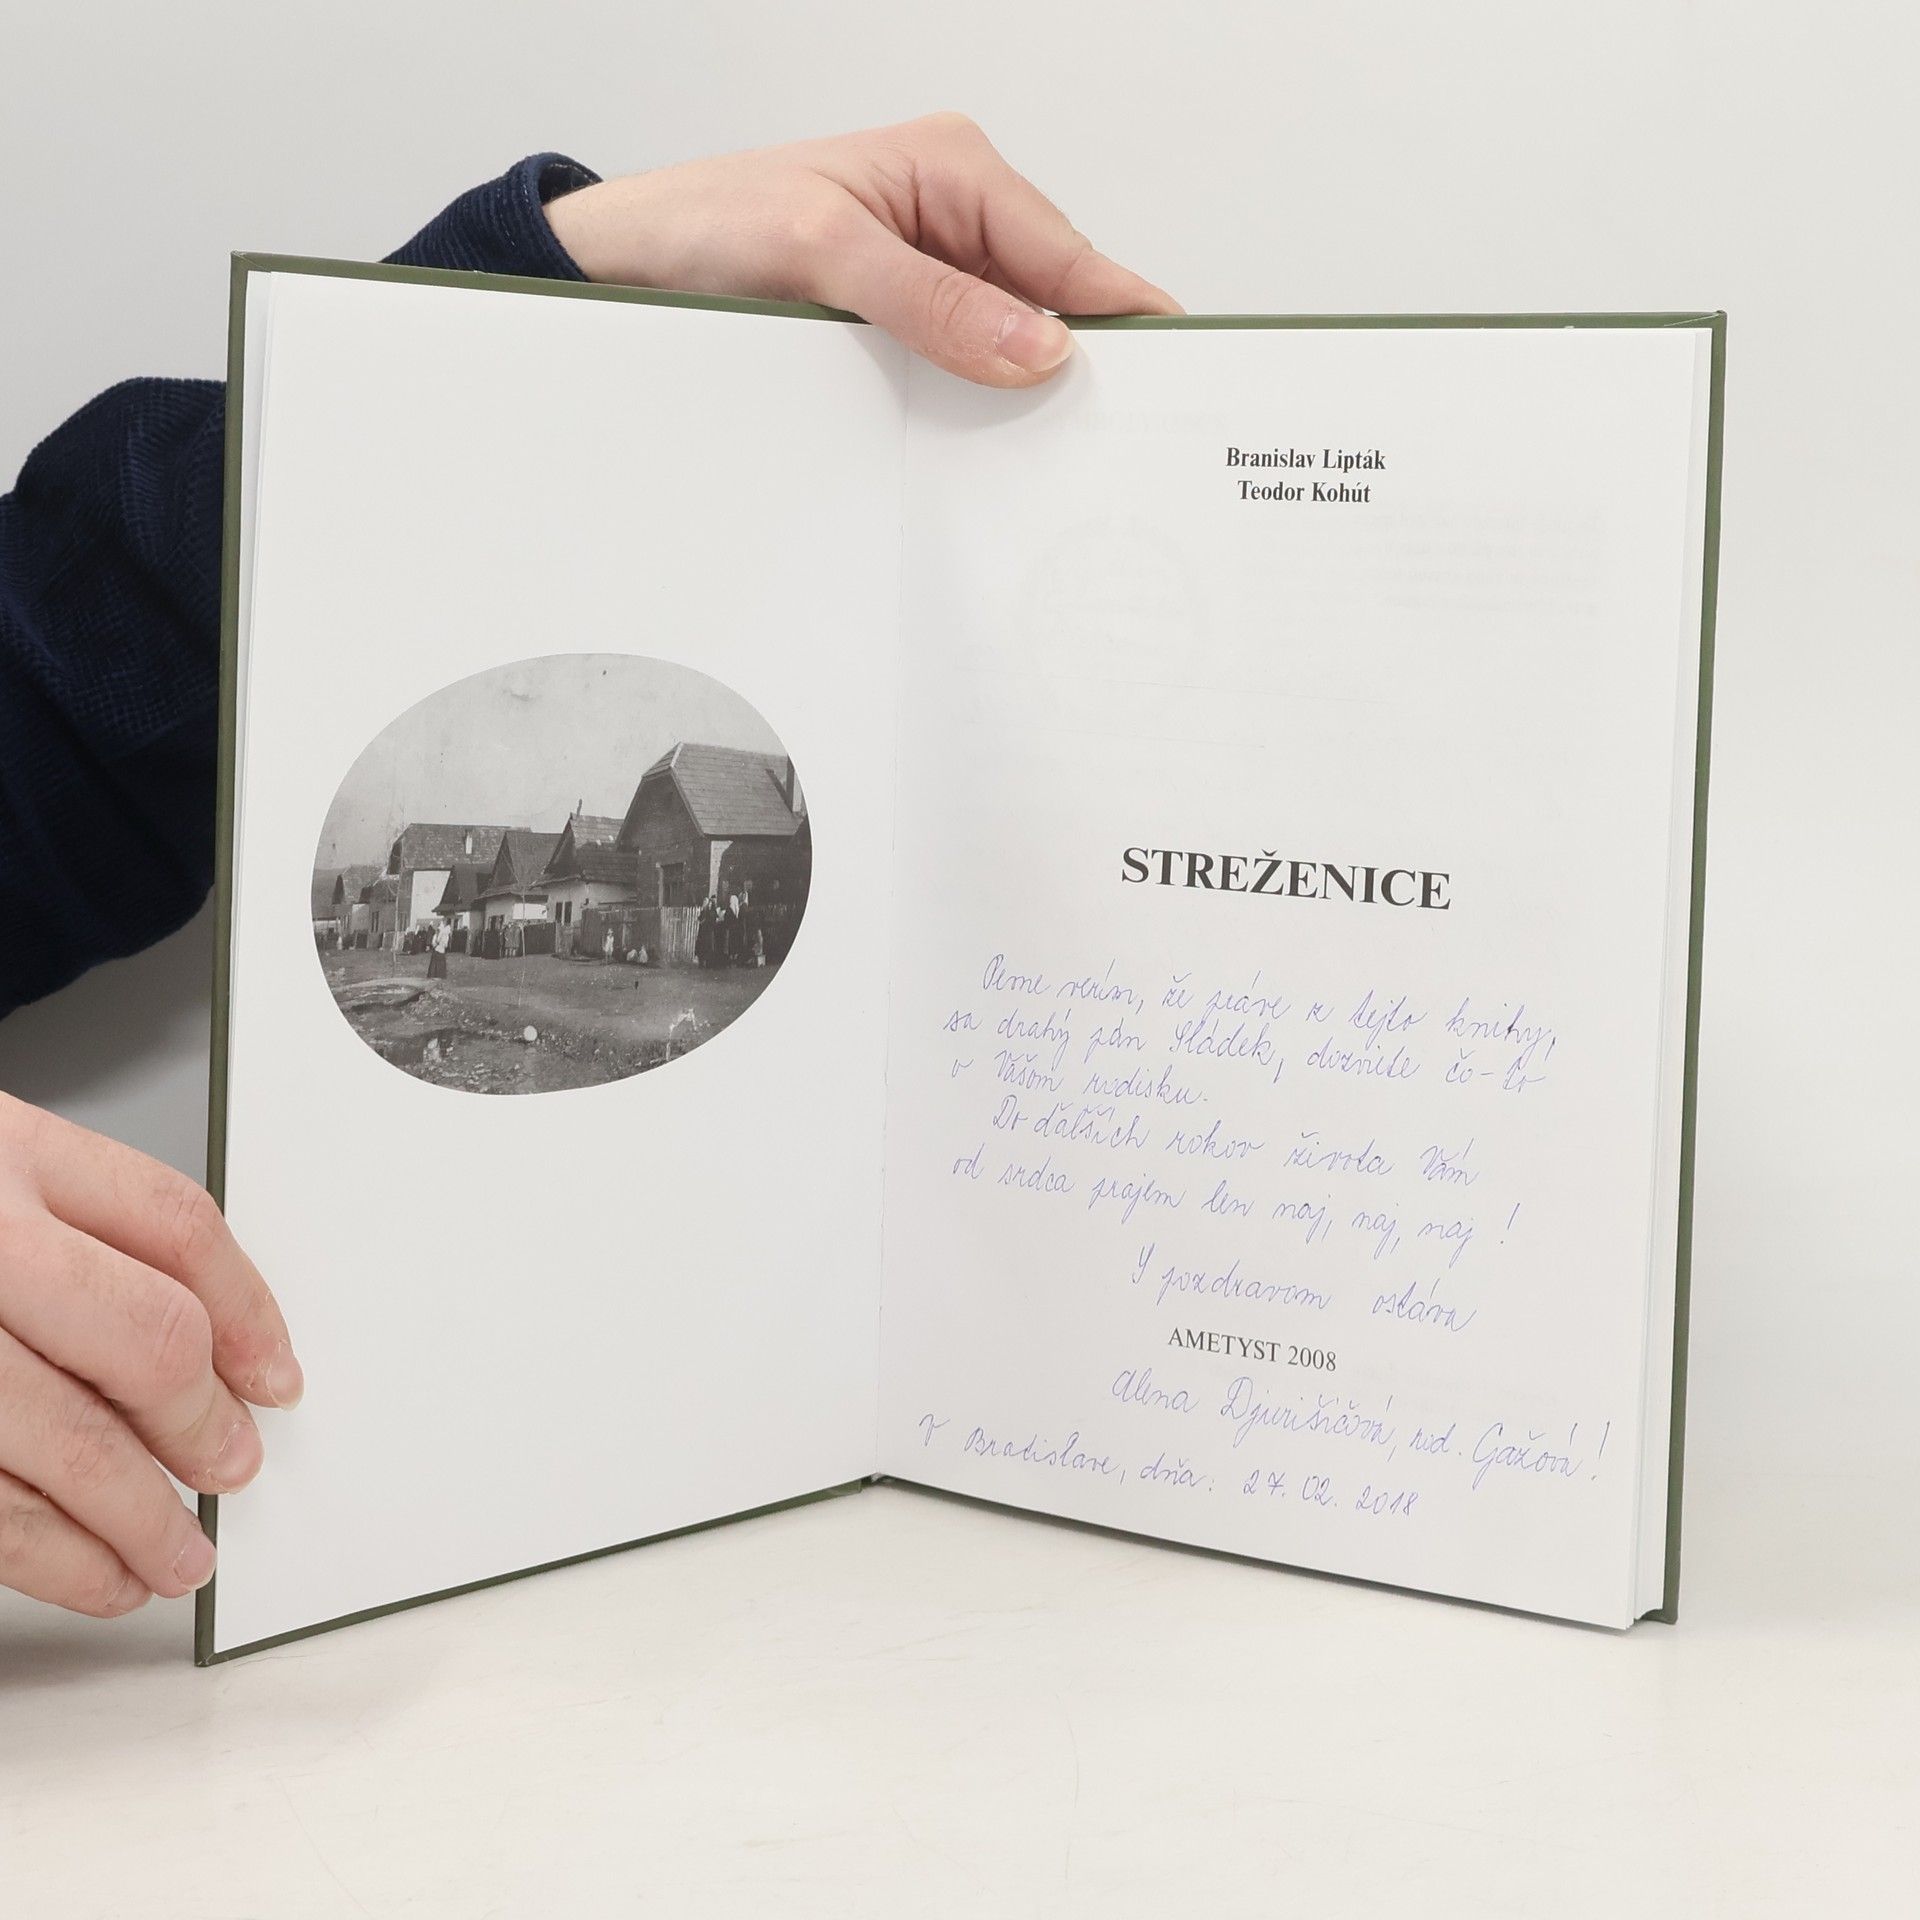 Branislav Lipták
Teodor Kohút
STREŽENICE
Peme verím, že práve z tejto knihy,
sa drahý pán Sládek, dozviete čo-to
o Vášom rodisku.
Do ďalších rokov života Vám
od srdca prajem len naj, naj, naj!
S pozdravom ostáva
AMETYST 2008
Alena Djurišičová, rod. Gažová!
V Bratislave, dňa: 27. 02. 2018